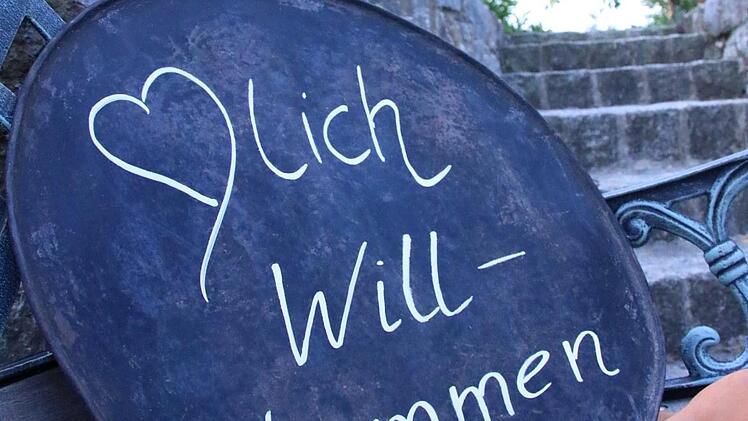 ❤lich
Will-
kommen